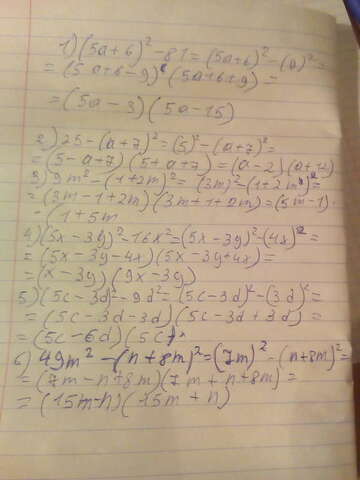 1) (5a+6)² - 81 = (5a+6)² - (9)² =
= (5a+6-9) (5a+6+9) =
= (5a-3) (5a-15)
2) 25 - (a+7)² = (5)² - (a+7)² =
= (5-a+7) (5+a+7) = (a-2) (a+12)
3) 9m² - (1+2m)² = (3m)² - (1+2m)² =
= (3m-1+2m) (3m+1+2m) = (5m-1) ·
· (1+5m
4) (5x-3y)² - 16x² = (5x-3y)² - (4x)² =
= (5x-3y-4x) (5x-3y+4x) =
= (x-3y) (9x-3y)
5) (5c-3d)² - 9d² = (5c-3d)² - (3d)² =
= (5c-3d-3d) (5c-3d+3d) =
= (5c-6d) (5c)
6) 49m² - (n+8m)² = (7m)² - (n+8m)² =
= (7m-n+8m) (7m+n+8m) =
= (15m-n) (15m+n)